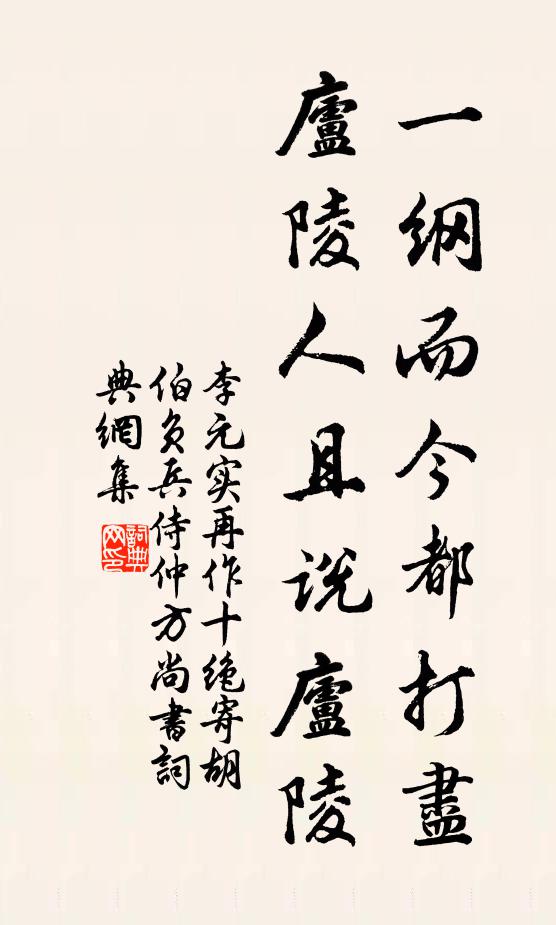 一纲而今都打盡
廬陵人且说廬陵
李元实再作十绝寄胡
伯负兵侍仲方尚書詞
典網集
詞典网印